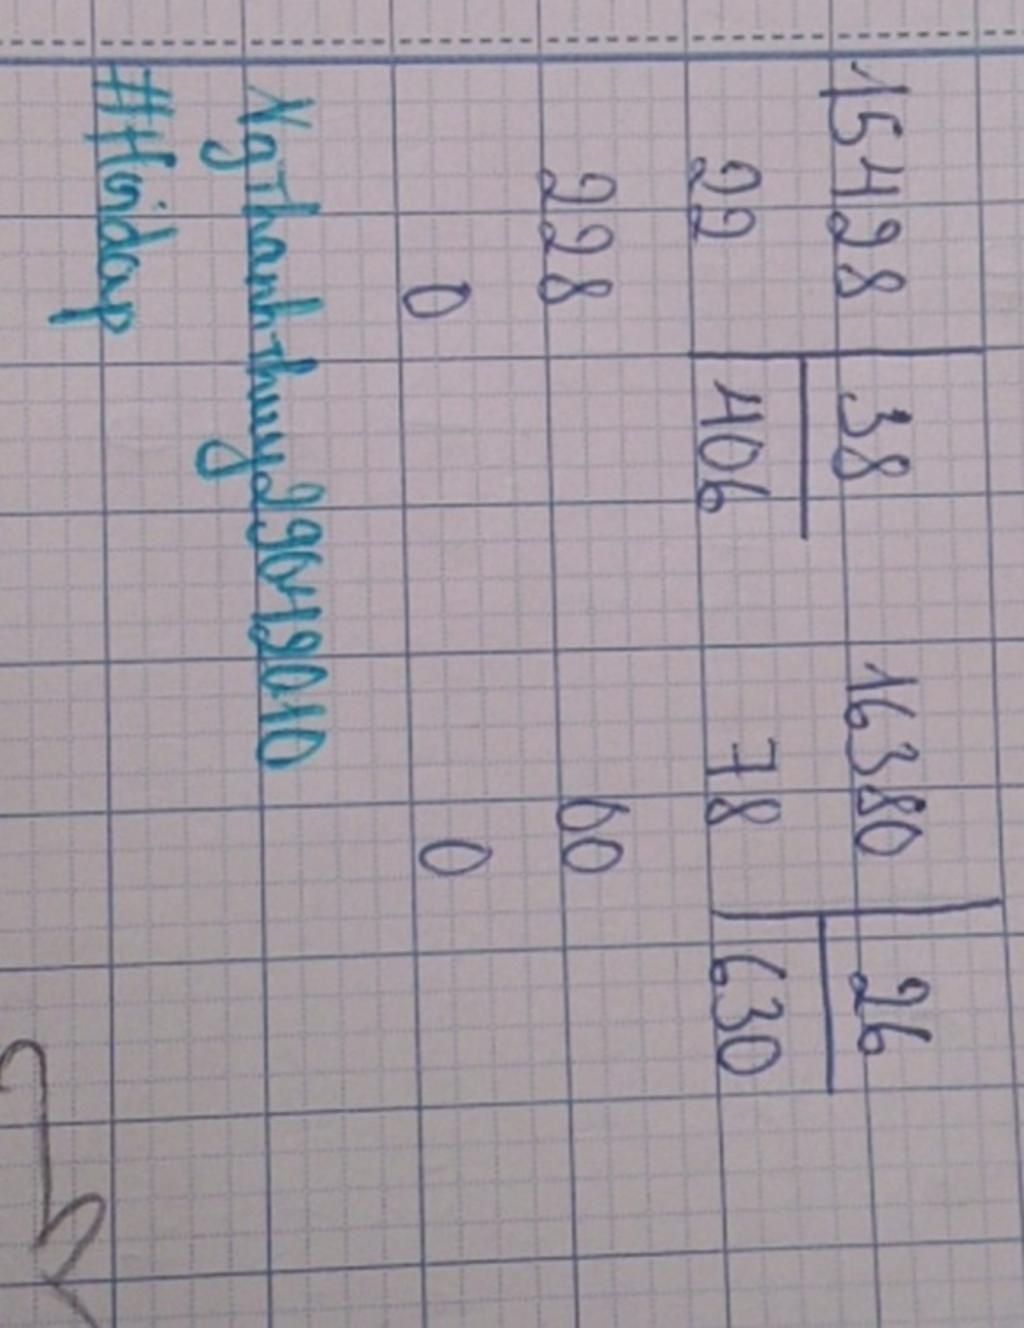 15428 38 16380 26
22 406 78 630
228 60
0 0
NgThanhthuy29042010
#Hoidap